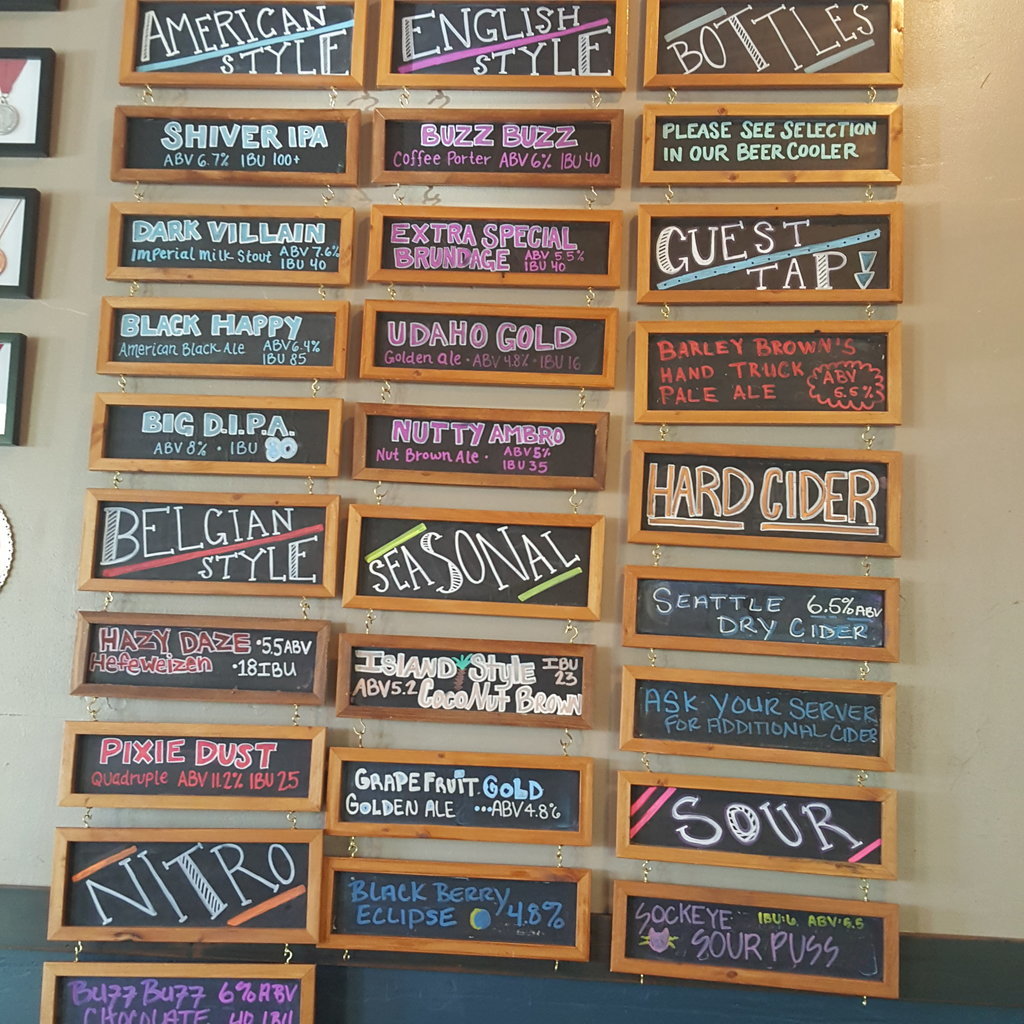 AMERICAN
STYLE
SHIVER IPA
ABV 6.7% IBU 100+
DARK VILLAIN
Imperial Milk Stout ABV 7.6%
IBU 40
BLACK HAPPY
American Black Ale ABV 6.4%
IBU 85
BIG D.I.P.A.
ABV 8% · IBU 80
BELGIAN
STYLE
HAZY DAZE ·5.5ABV
Hefeweizen ·18IBU
PIXIE DUST
Quadruple ABV 11.2% IBU 25
NITRO
BUZZ BUZZ 6%ABV
CHOCOLATE 40 IBU
ENGLISH
STYLE
BUZZ BUZZ
Coffee Porter ABV 6% IBU 40
EXTRA SPECIAL
BRUNDAGE ABV 5.5%
IBU 40
UDAHO GOLD
Golden ale · ABV 4.8% · IBU 16
NUTTY AMBRO
Nut Brown Ale · ABV 5%
IBU 35
SEASONAL
ISLAND Style IBU
23
ABV 5.2 COCONUT BROWN
GRAPEFRUIT GOLD
GOLDEN ALE ...ABV 4.8%
BLACK BERRY
ECLIPSE 4.8%
BOTTLES
PLEASE SEE SELECTION
IN OUR BEER COOLER
GUEST
TAP
BARLEY BROWN'S
HAND TRUCK
PALE ALE
ABV
5.5%
HARD CIDER
SEATTLE 6.5% ABV
DRY CIDER
ASK YOUR SERVER
FOR ADDITIONAL CIDER
SOUR
SOCKEYE IBU:6 ABV:5.5
SOUR PUSS